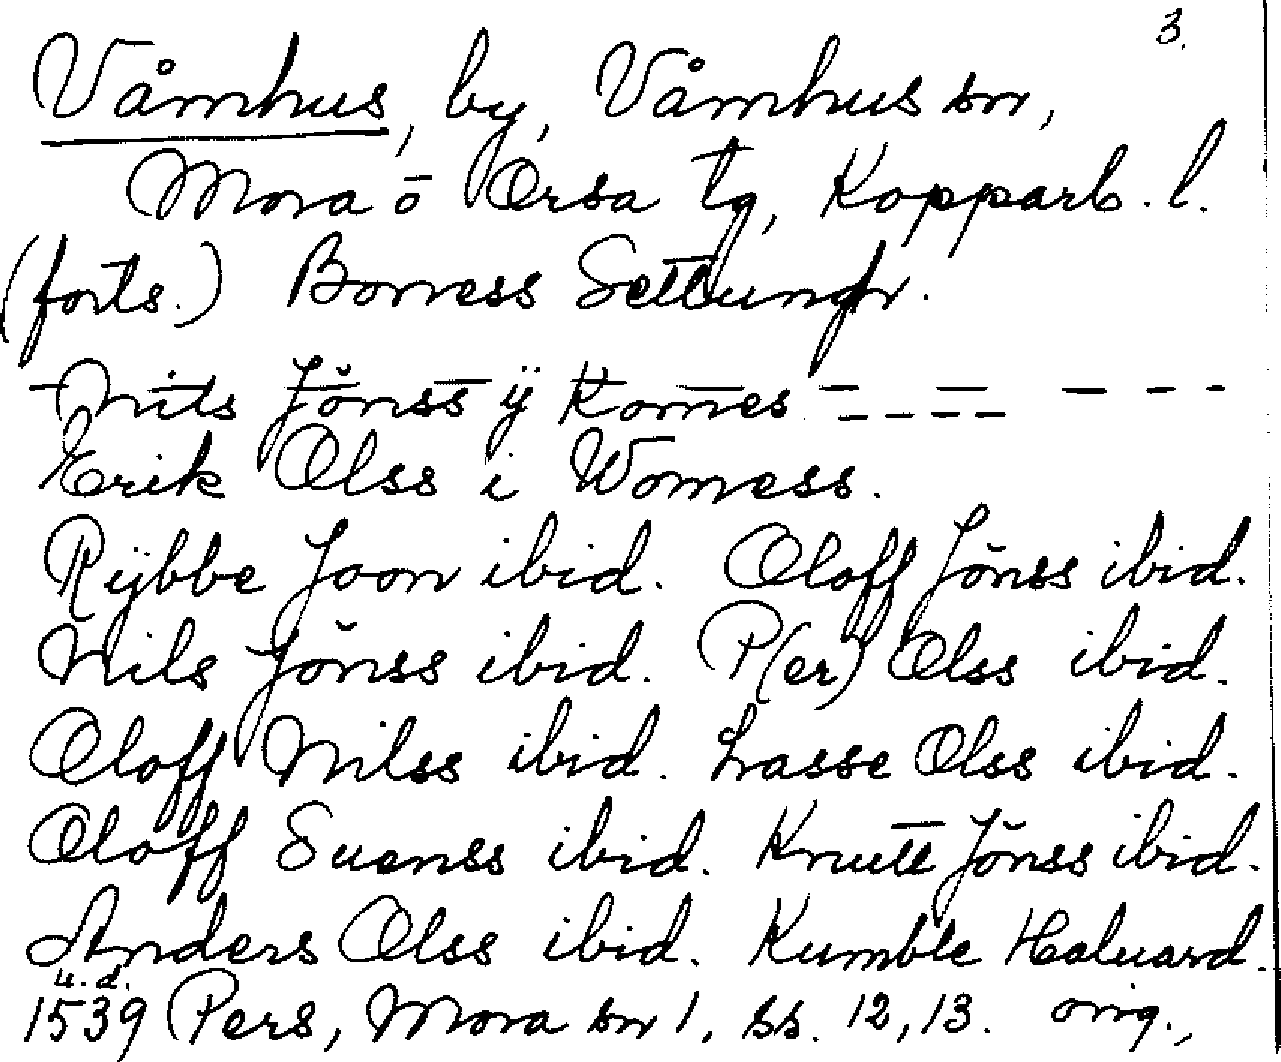 3.
Våmhus, by, Våmhus sn,
Mora o Orsa tg, Kopparb. l.
(forts.) Bonness Settungh.
Nils Jönss ÿ Komes
Erik Olss i Womess.
Rÿbbe Joon ibid. Oloff Jönss ibid.
Nils Jönss ibid. P(er) Olss ibid.
Oloff Nilss ibid. Lasse Olss ibid.
Oloff Suenss ibid. Knutt Jönss ibid.
Anders Olss ibid. Kumble Haluard.
u.d.
1539 Pers, Mora sn 1, ss. 12, 13. orig.,